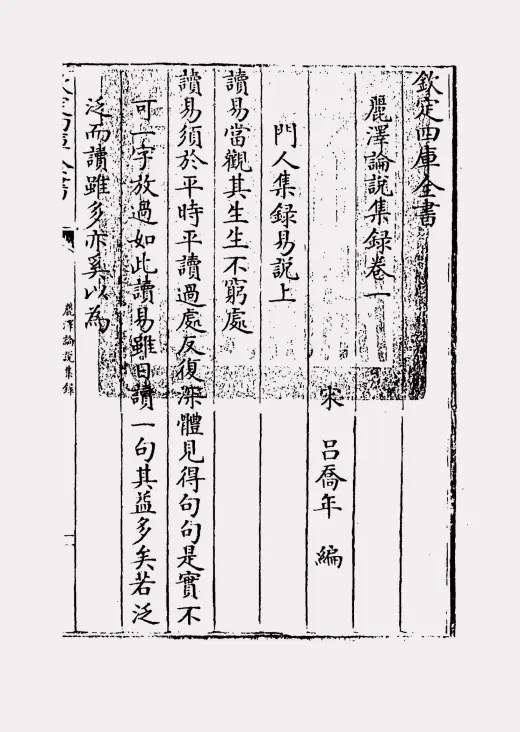 欽定四庫全書
麗澤論說集録卷一
宋 呂喬年 編
門人集録易說上
讀易當觀其生生不窮處
讀易須於平時平讀過處反復深體見得句句是實不
可一字放過如此讀易雖日讀一句其益多矣若泛
泛而讀雖多亦奚以為
欽定四庫全書
麗澤論說集録
一